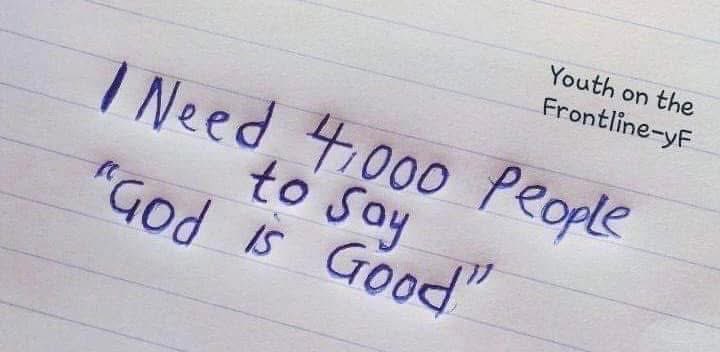 Youth on the
Frontline-yF
I Need 4,000 People
to Say
"God is Good"